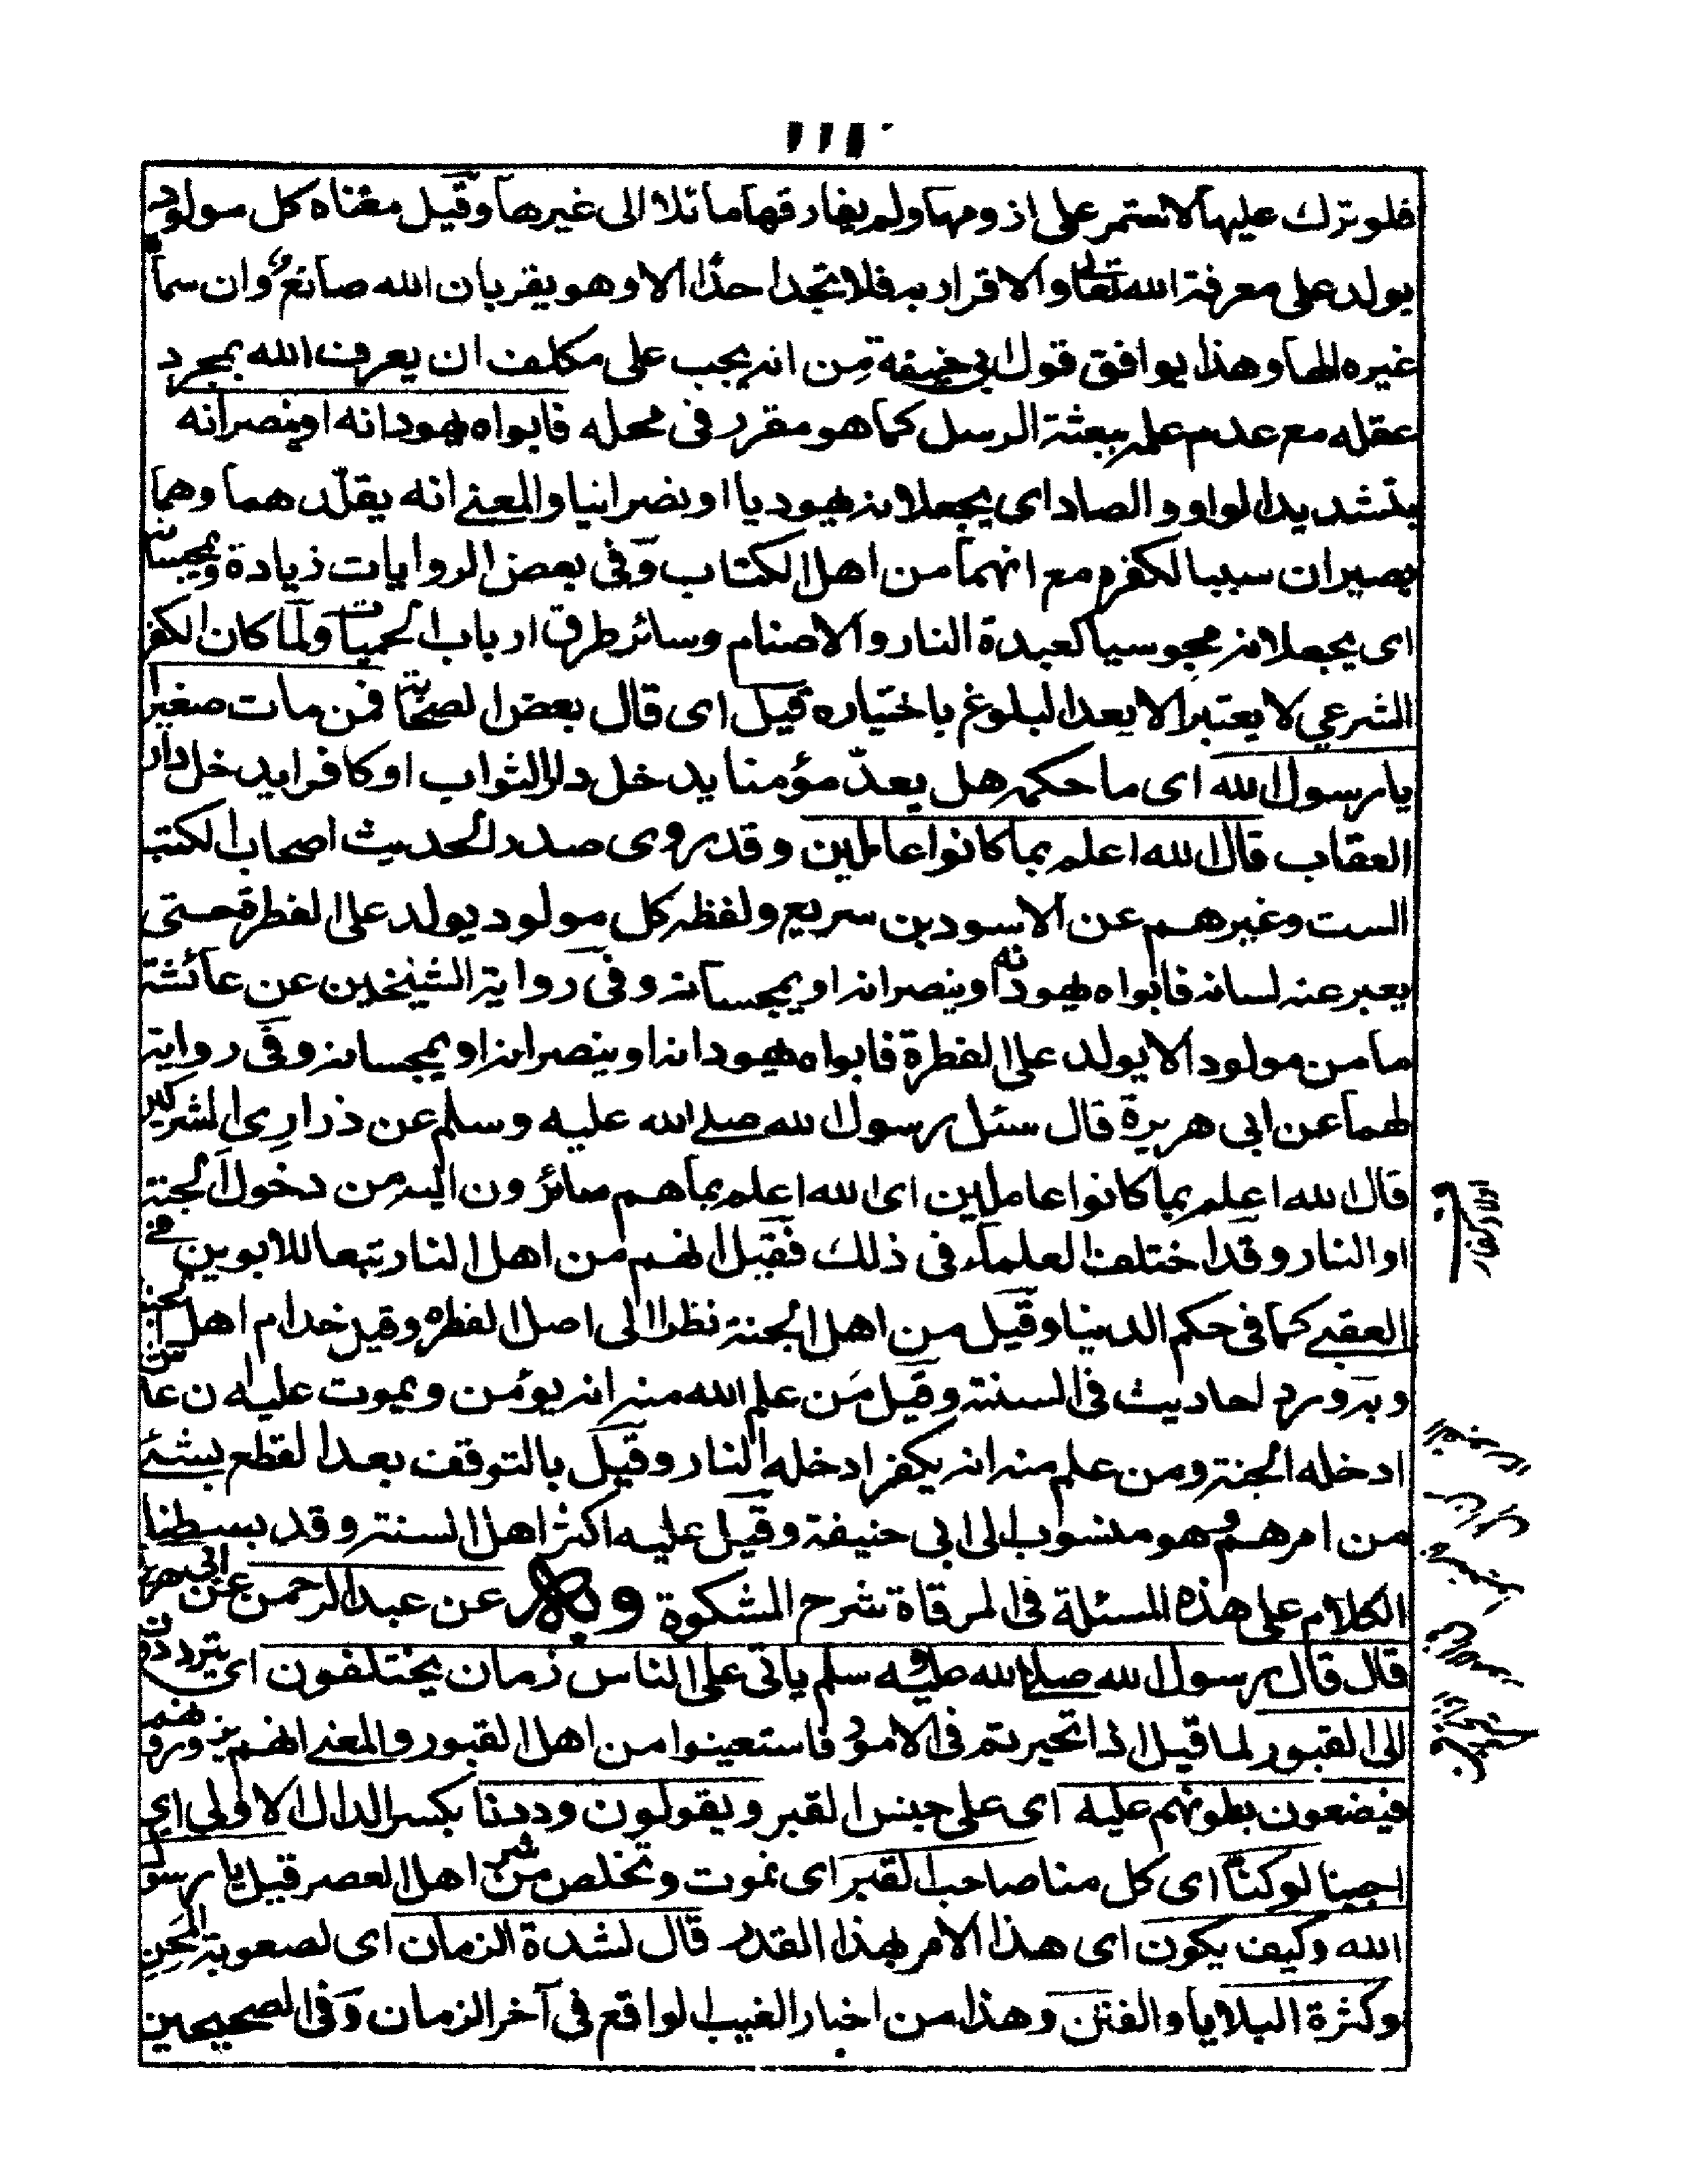 فلو ترك عليها لاستمر على لزومها ولم يفارقها مائلا الى غيرها وقيل معناه كل مولود
يولد على معرفة الله تعالى والاقرار به فلا تجد احدًا الا وهو يقر بان الله صانعه وان سما
غيره الها وهذا يوافق قول ابى حنيفة من انه يجب على مكلف ان يعرف الله بمجرد
عقله مع عدم علمه ببعثة الرسل كما هو مقرر فى محله فابواه يهودانه او ينصرانه
بتشديد الواو والصاد اى يجعلانه يهوديا او نصرانيا والمعنى انه يقلّدهما وهما
يصيران سببا لكفره مع انهما من اهل الكتاب وفى بعض الروايات زيادة ويمجسانه
اى يجعلانه مجوسيا كعبدة النار والاصنام وسائر طرق ارباب الحميات ولما كان الكفر
الشرعي لا يعتبر الا بعد البلوغ باختياره قيل اى قال بعض الصحابة فمن مات صغيرا
يا رسول الله اى ما حكمه هل يعدّ مؤمنا يدخل دار الثواب او كافرا يدخل دار
العقاب قال الله اعلم بما كانوا عاملين وقد روى صدر الحديث اصحاب الكتب
الست وغيرهم عن الاسود بن سريع ولفظه كل مولود يولد على الفطرة حتى
يعبر عنه لسانه فابواه يهودانه او ينصرانه او يمجسانه وفى رواية الشيخين عن عائشة
ما من مولود الا يولد على الفطرة فابواه يهودانه او ينصرانه او يمجسانه وفى رواية
لهما عن ابى هريرة قال سئل رسول الله صلى الله عليه وسلم عن ذرارى المشركين
قال الله اعلم بما كانوا عاملين اى الله اعلم بما هم صائرون اليه من دخول الجنة
او النار وقد اختلف العلماء فى ذلك فقيل انهم من اهل النار تبعا للابوين فى
العقبى كما فى حكم الدنيا وقيل من اهل الجنة نظرا الى اصل الفطرة وقيل خدام اهل الجنة
وبه ورد احاديث فى السنة وقيل من علم الله منه انه يؤمن ويموت عليه ان عاش
ادخله الجنة ومن علم منه انه يكفر ادخله النار وقيل بالتوقف بعد القطع بشئ
من امرهم وهو منسوب الى ابى حنيفة وقيل عليه اكثر اهل السنة وقد بسطنا
الكلام على هذه المسئلة فى المرقاة شرح المشكوة وبه عن عبد الرحمن عن ابى هريرة
قال قال رسول الله صلى الله عليه وسلم ياتى على الناس زمان يختلفون اى يترددون
الى القبور لما قيل اذا تحيرتم فى الامور فاستعينوا من اهل القبور والمعنى انهم يزورونهم
فيضعون بطونهم عليه اى على جنس القبر ويقولون وددنا بكسر الدال الاولى اى
احببنا لو كنا اى كل منا صاحب القبر اى نموت ونخلص من شر اهل العصر قيل يا رسول
الله وكيف يكون اى هذا الامر بهذا القدر قال لشدة الزمان اى لصعوبة المحن
وكثرة البلايا والفتن وهذا من اخبار الغيب الواقع فى آخر الزمان وفى الصحيحين
اولاد كفار